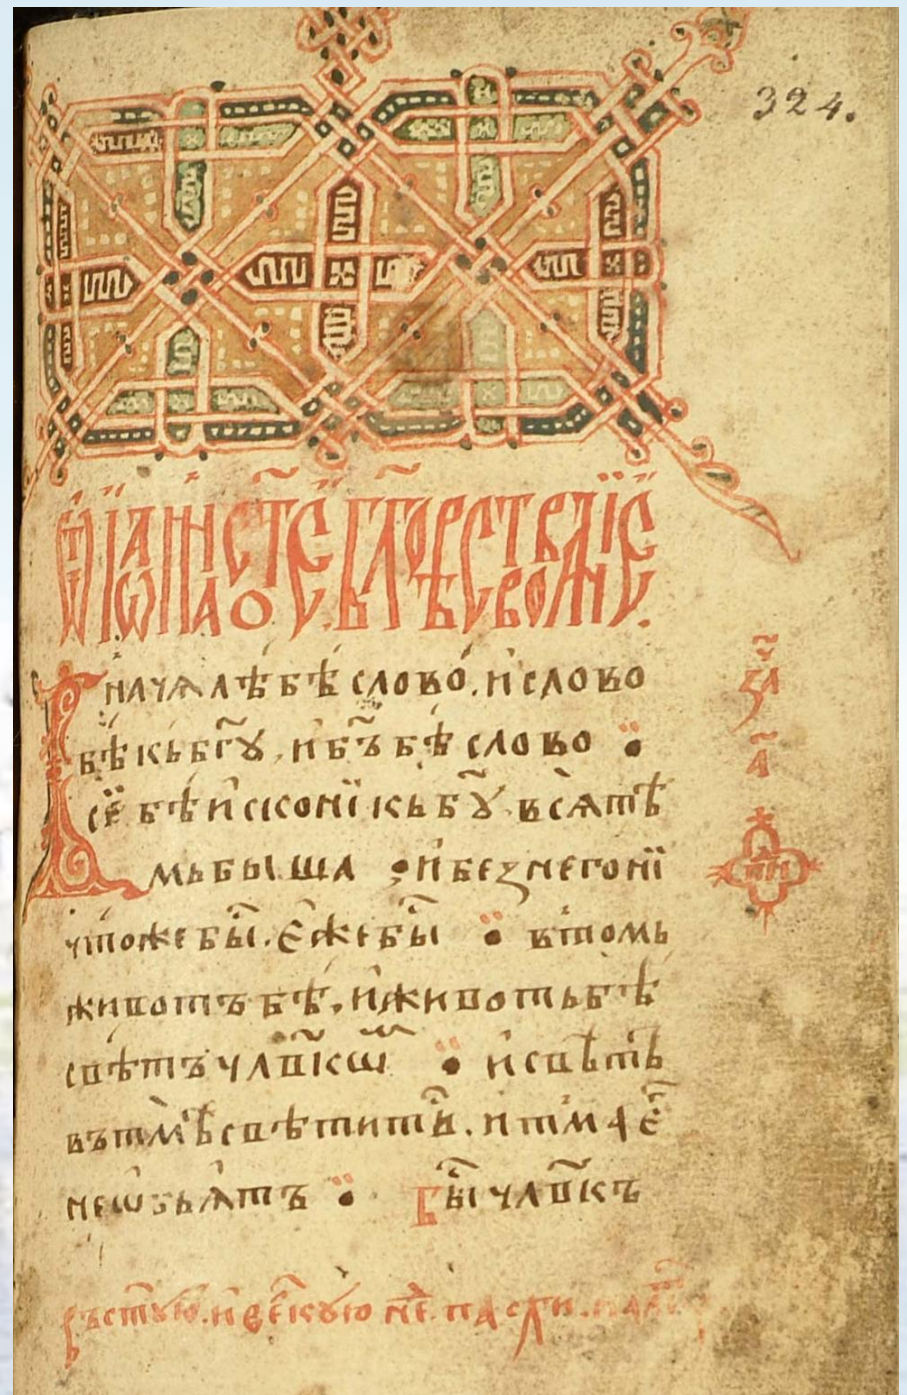 324.
Ѿ іѡанна ст҃ое бл҃говѣствованїе.
Вначалѣ бѣ слово. и слово
бѣ къ бг҃у. и бъ҃ бѣ слово
се бѣ искони къ бꙋ҃ всѧ тѣ
мь быша и без него ни
чтоже бы҇. еже бы҇ в томь
животъ бѣ. и животь бѣ
свѣтъ чл҃вкѡⷨ и свѣтъ
въ тмѣ свѣтитьⷭ. и тма е҇
не ѡбьѧтъ Бы҇ чл҃вкъ
за҃
а҃